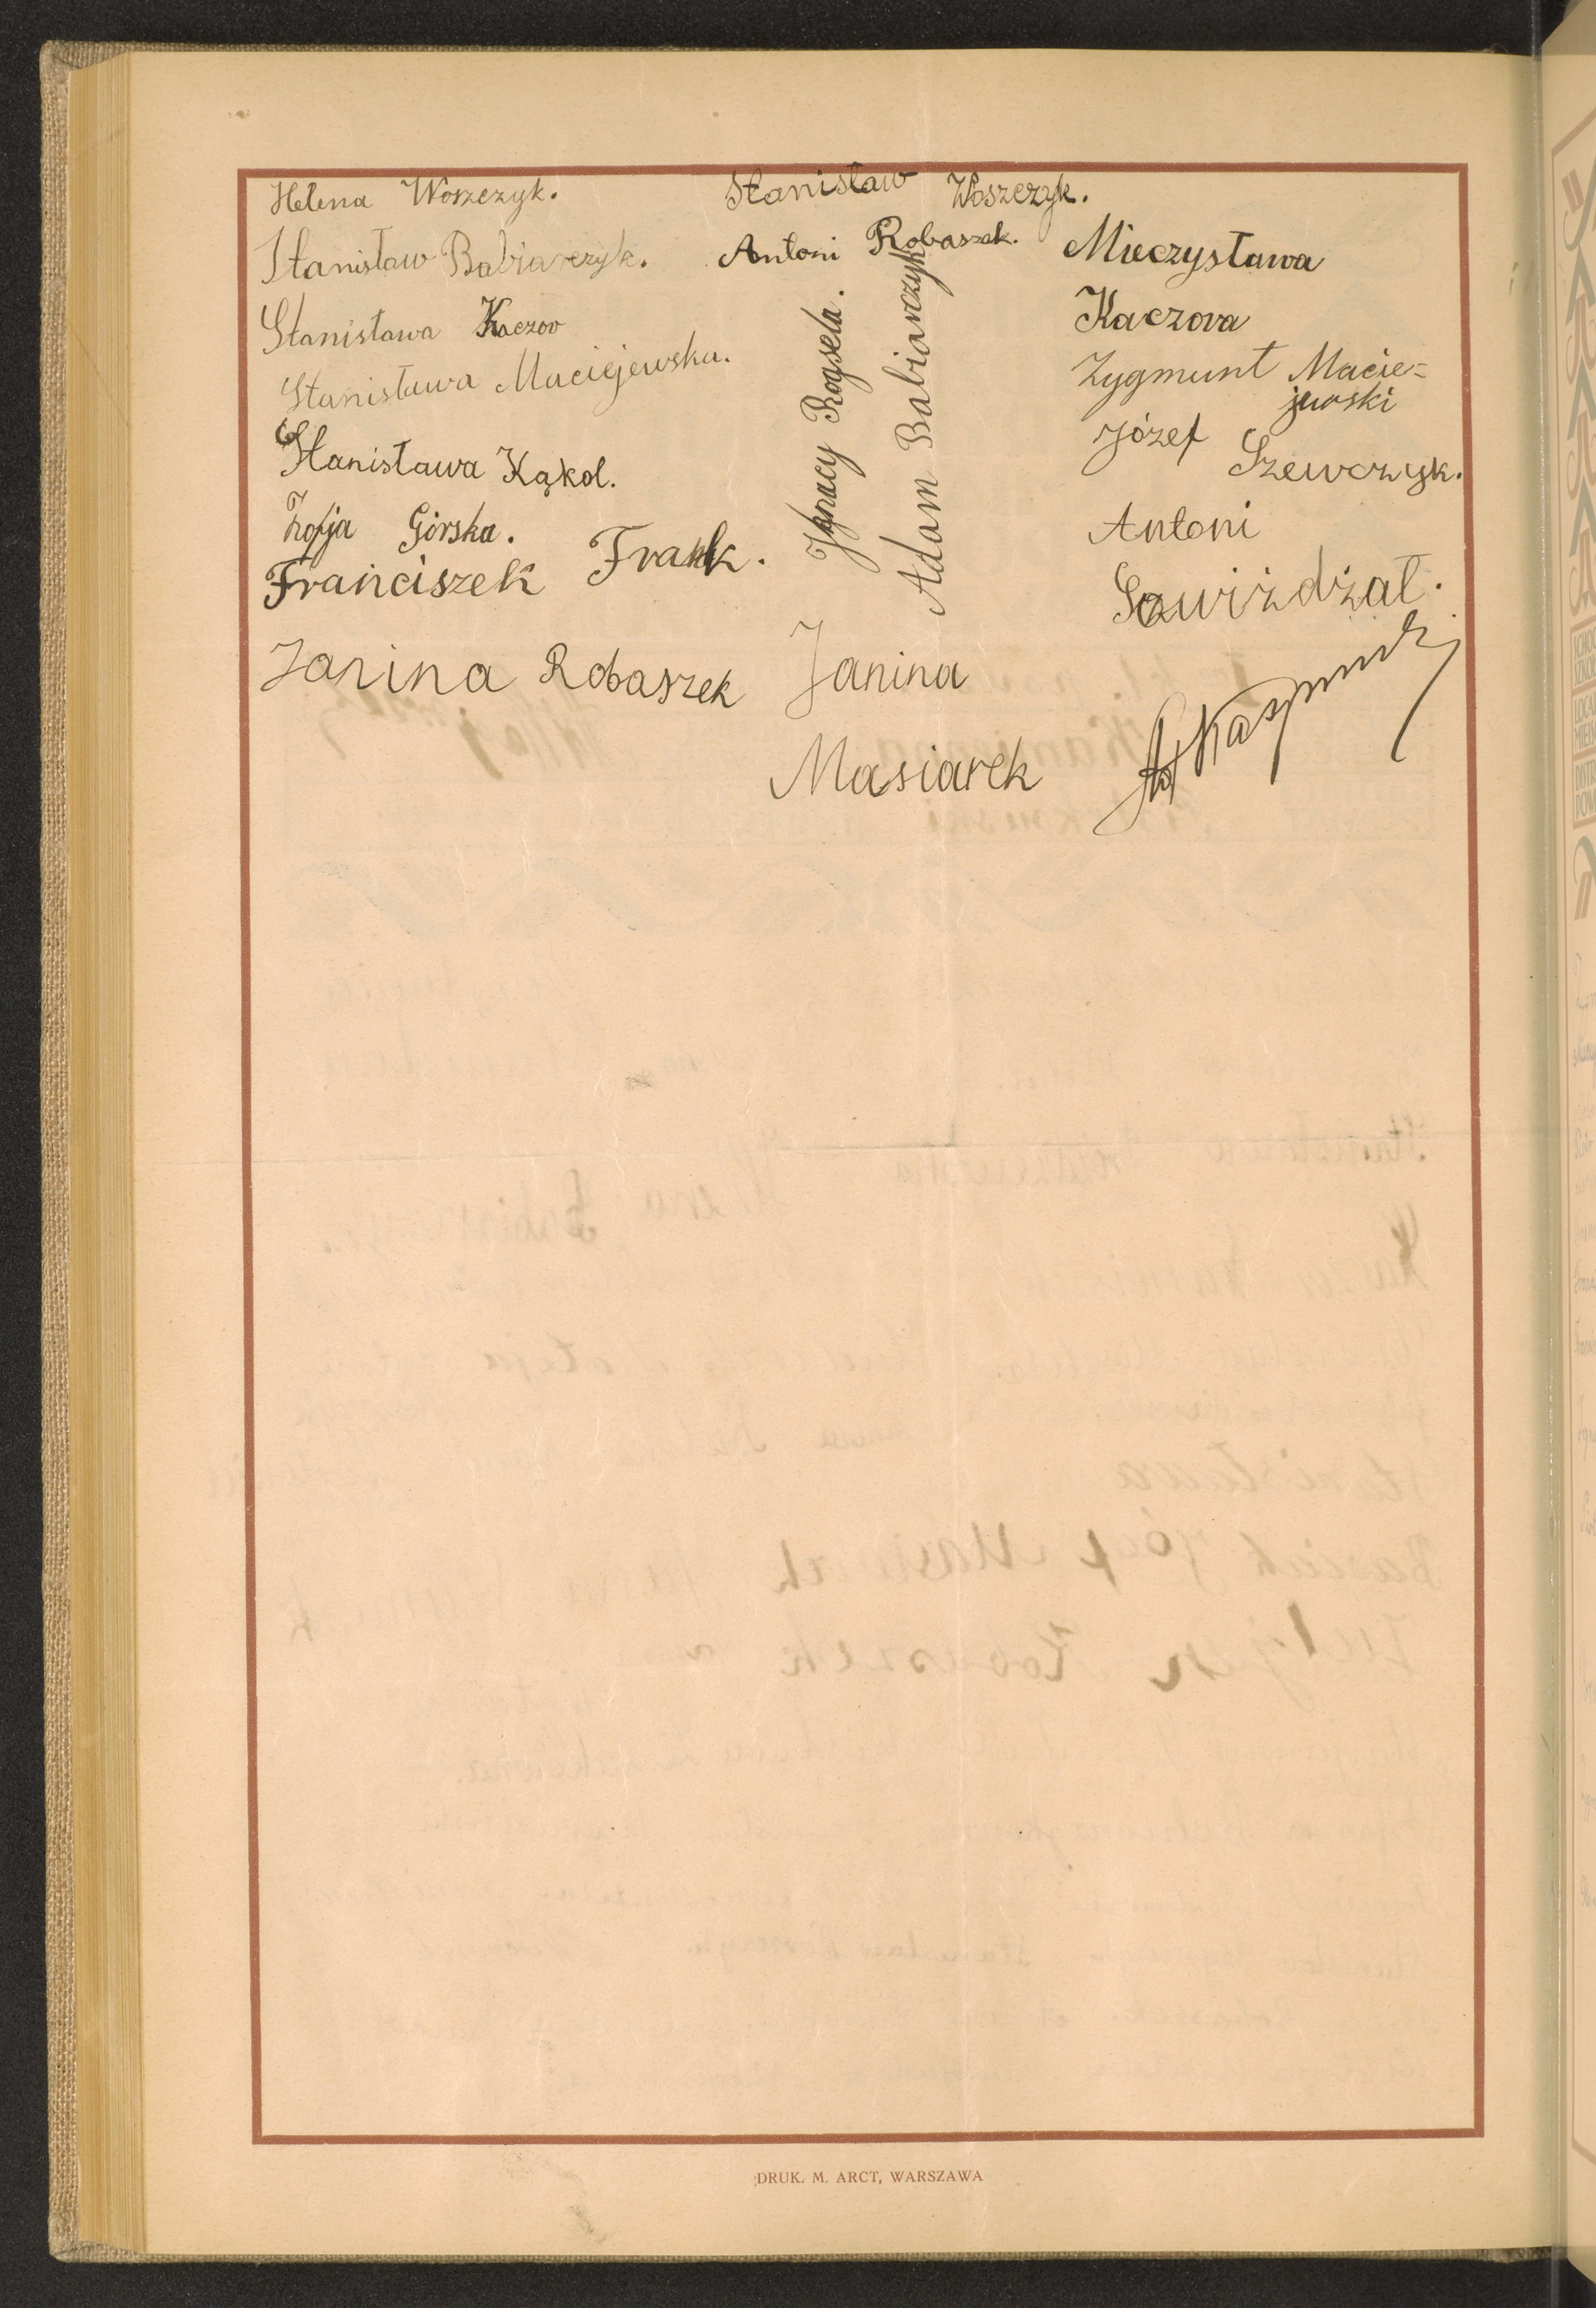 Helena Woszczyk. Stanisław Woszczyk.
Stanisław Babiarczyk. Antoni Robaszek.
Mieczysława
Kaczora
Stanisława Kaczor
Stanisława Maciejewska.
Stanisława Kąkol.
Zofja Górska.
Franciszek Frank.
Ignacy Rogsela.
Adam Babiarczyk
Zygmunt Macie=
jewski
Józef Szewczyk.
Antoni
Gawiżdżał.
Janina Robaszek
Janina
Masiarek
DRUK. M. ARCT, WARSZAWA